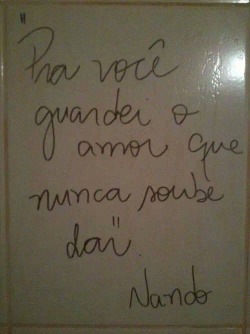 "
Pra você
guardei o
amor que
nunca soube
dar".
Nando